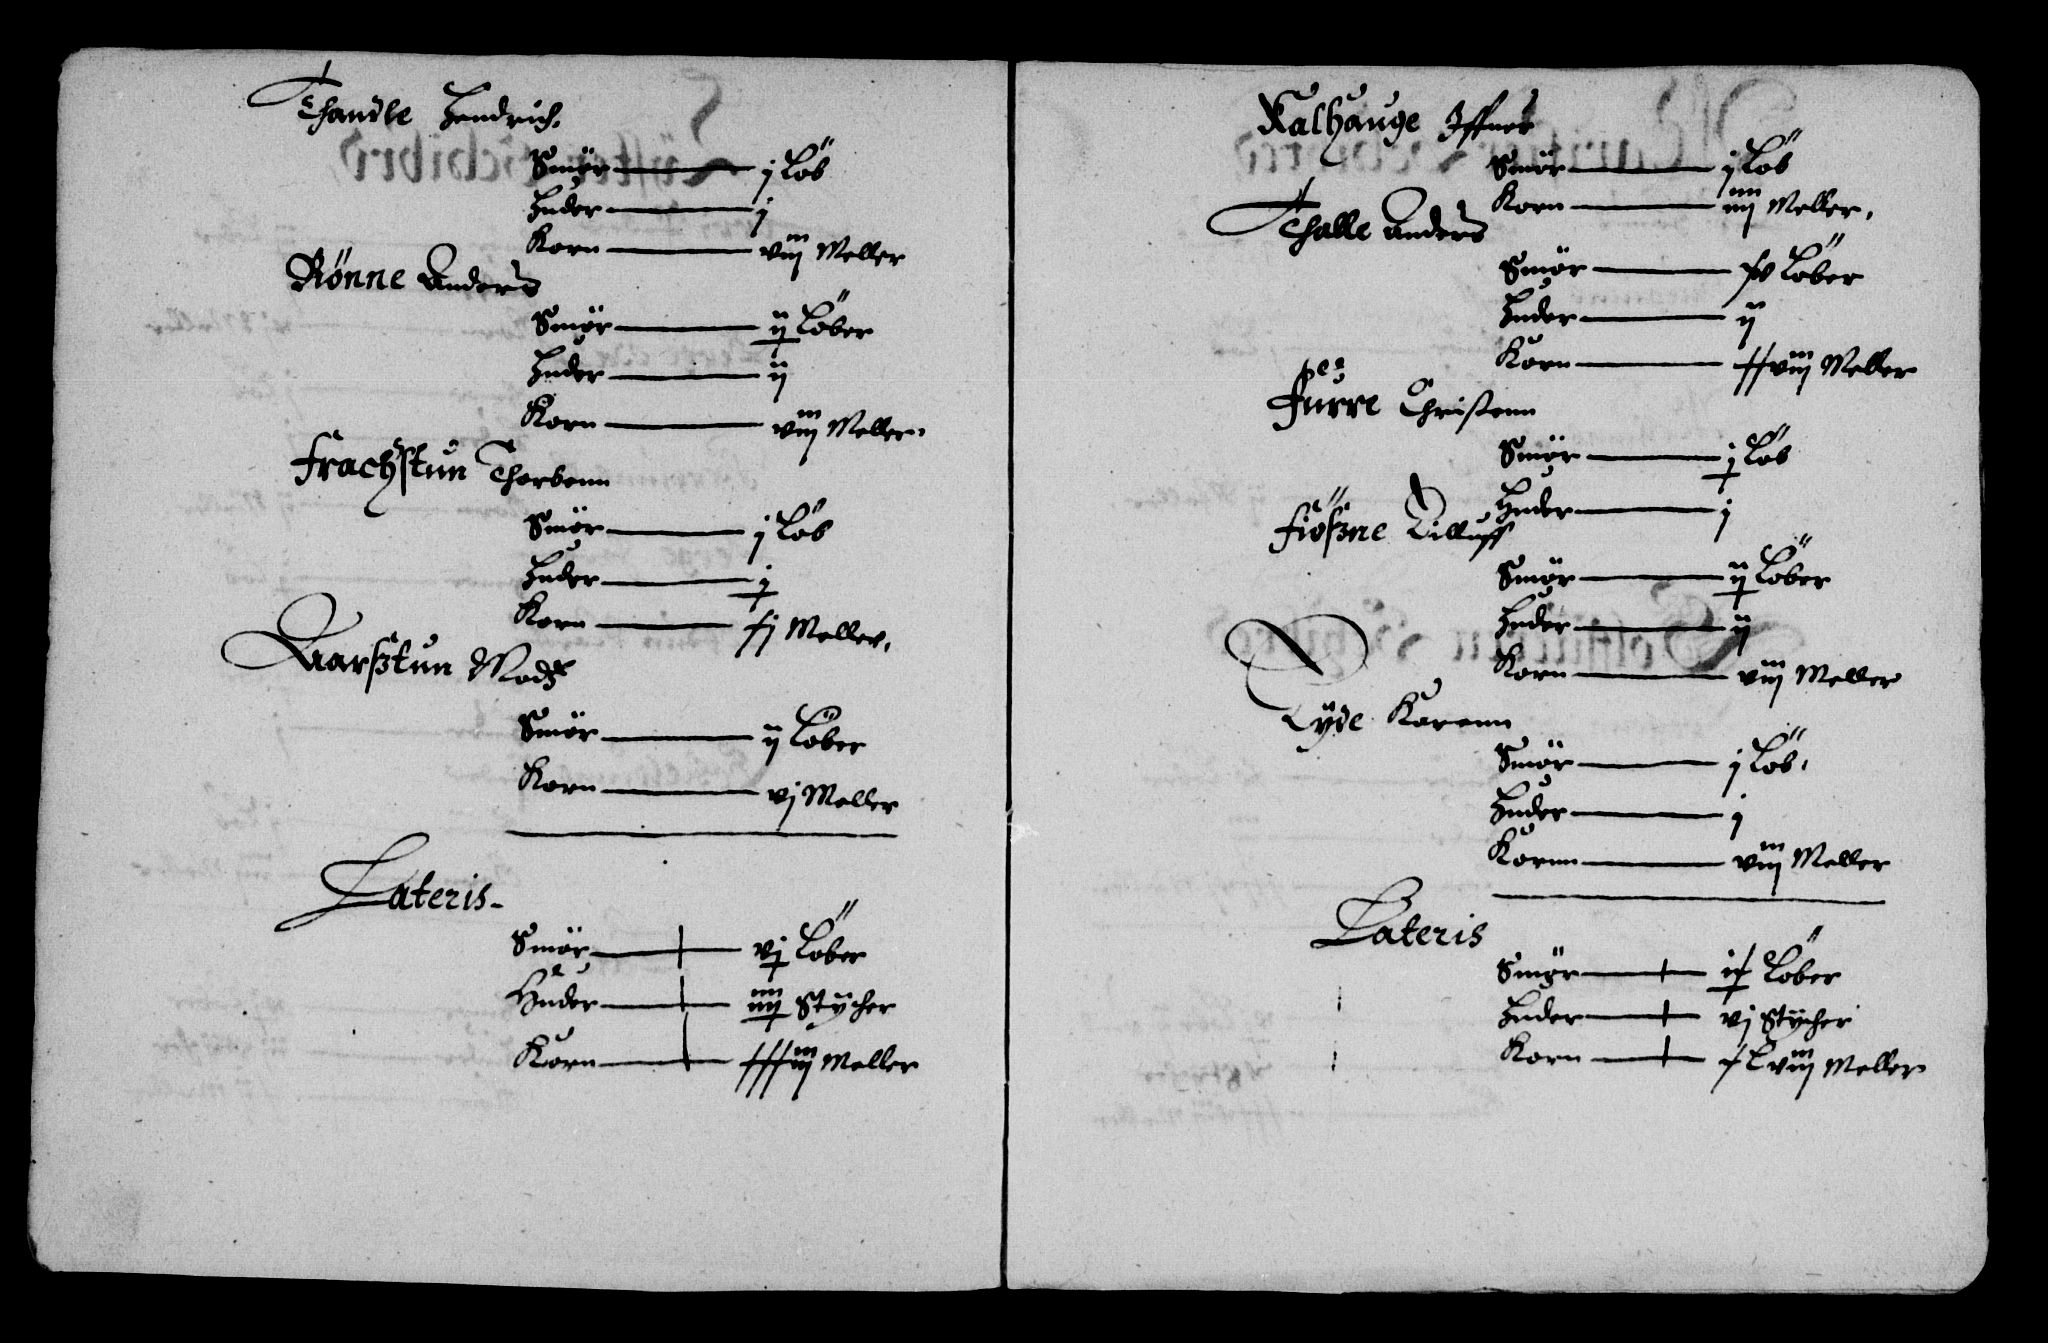 Thandle Hendrich.
Smör — j Löb
Huder — j
Korn — viij Meller
Rönne Anders
Smör — ij Löber
Huder — ij
Korn — viij Meller.
Frachstun Thorbenn
Smör — j Löb
Huder — j
Korn — xj Meller.
Aarsztun Madz
Smör — ij Löber
Korn — vj Meller
Lateris.
Smör — vj Löber
Huder — iiij Stÿcher
Korn — xxxiij Meller
Kalhauge Iffuer
Smör — j Löb
Korn — iiij Meller.
Thalle Anders
Smör — v Löber
Huder — ij
Korn — xxviij Meller
Per
Furre Christenn
Smör — j Löb
Huder — j
Fiöszne Tilluff
Smör — ij Löber
Huder — ij
Korn — viij Meller
Tÿde Karenn
Smör — j Löb.
Huder — j
Kornn — viij Meller
Lateris
Smör — ix Löber
Huder — vj Stÿcher
Korn — xLviij Meller